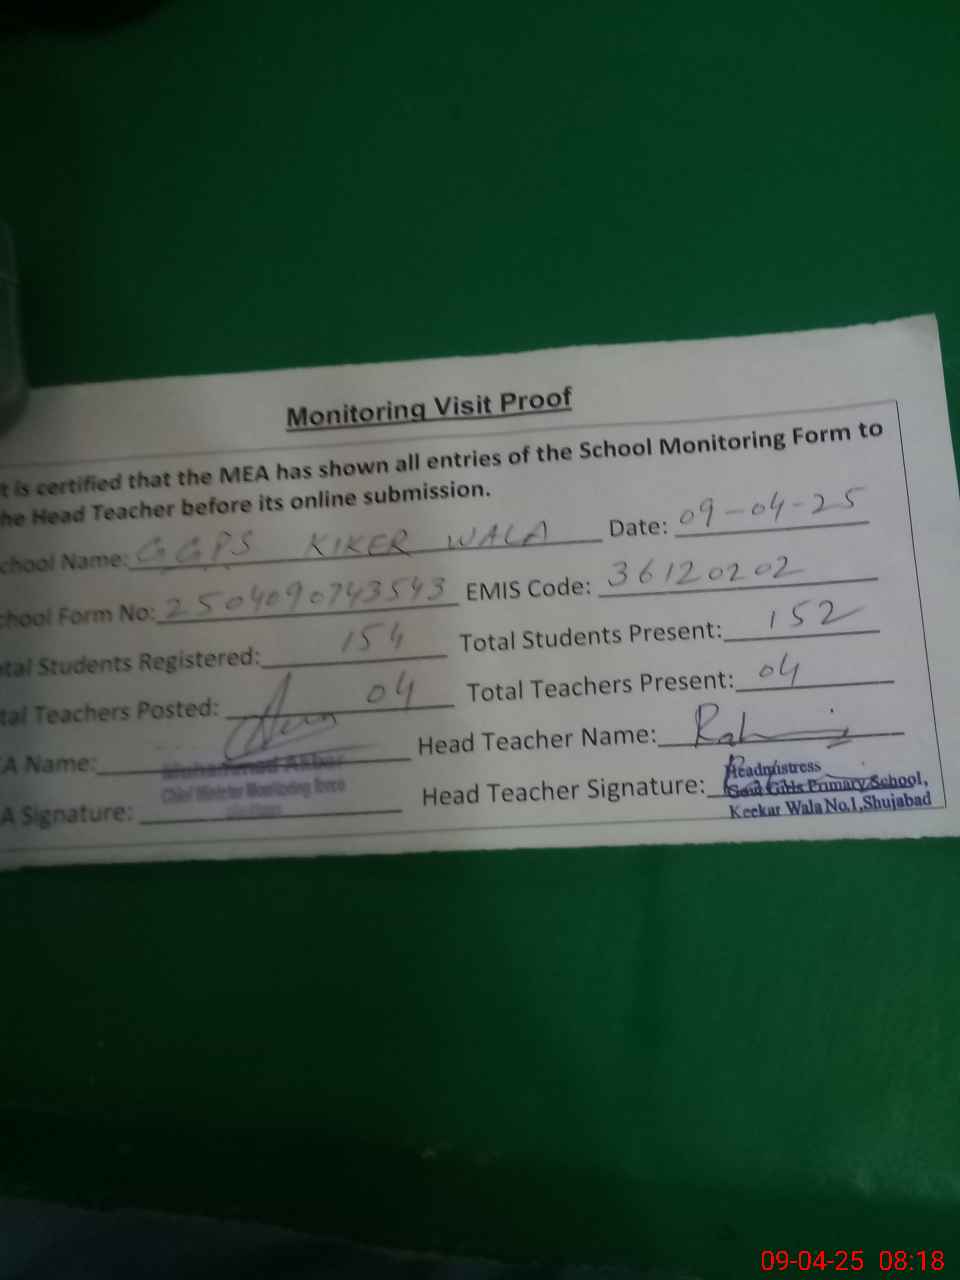 Monitoring Visit Proof
t is certified that the MEA has shown all entries of the School Monitoring Form to
he Head Teacher before its online submission.
chool Name: GGPS KIKER WALA Date: 09-04-25
chool Form No: 2504090743543 EMIS Code: 36120202
tal Students Registered: 154 Total Students Present: 152
tal Teachers Posted: 04 Total Teachers Present: 04
A Name: Head Teacher Name:
Muhammad Akbar
Chief Minister Monitoring Force
A Signature: Head Teacher Signature:
Headmistress
Govt Girls Primary School,
Keekar Wala No.1, Shujabad
09-04-25 08:18